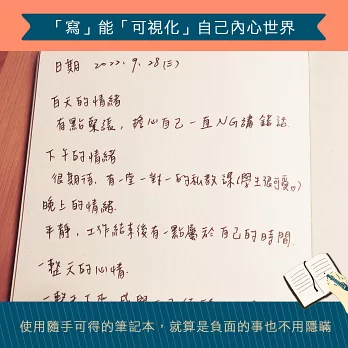 「寫」能「可視化」自己內心世界
日期 2022.9.28(三)
白天的情緒
有點緊張，擔心自己一直NG講錯話.
下午的情緒
很期待, 有一堂一對一的私教課(學生很可愛。)
晚上的情緒.
平靜, 工作結束後有一點屬於自己的時間.
一整天的心情.
使用隨手可得的筆記本，就算是負面的事也不用隱瞞